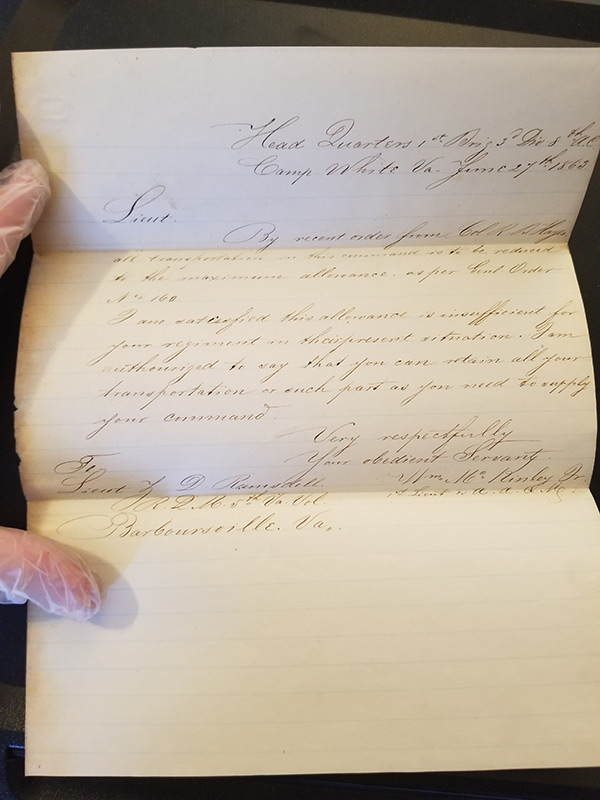 Head Quarters 1st Brig 3d Div 8th A.C.
Camp White Va. June 27th 1863
Lieut.
By recent order from Col R. B. Hayes
all transportation in this command is to be reduced
to the maximum allowance. as per Genl Order
No 160
I am satisfied this allowance is insufficient for
your regiment in their present situation. I am
authourized to say that you can retain all your
transportation or such part as you need to supply
your command.
Very respectfully
Your obedient Servant.
To
Wm McKinley Jr.
Lieut D Ramsdell
1st Lieut & a. a. Q. M.
R. Q. M. 5th Va. Vol.
Barboursville. Va.